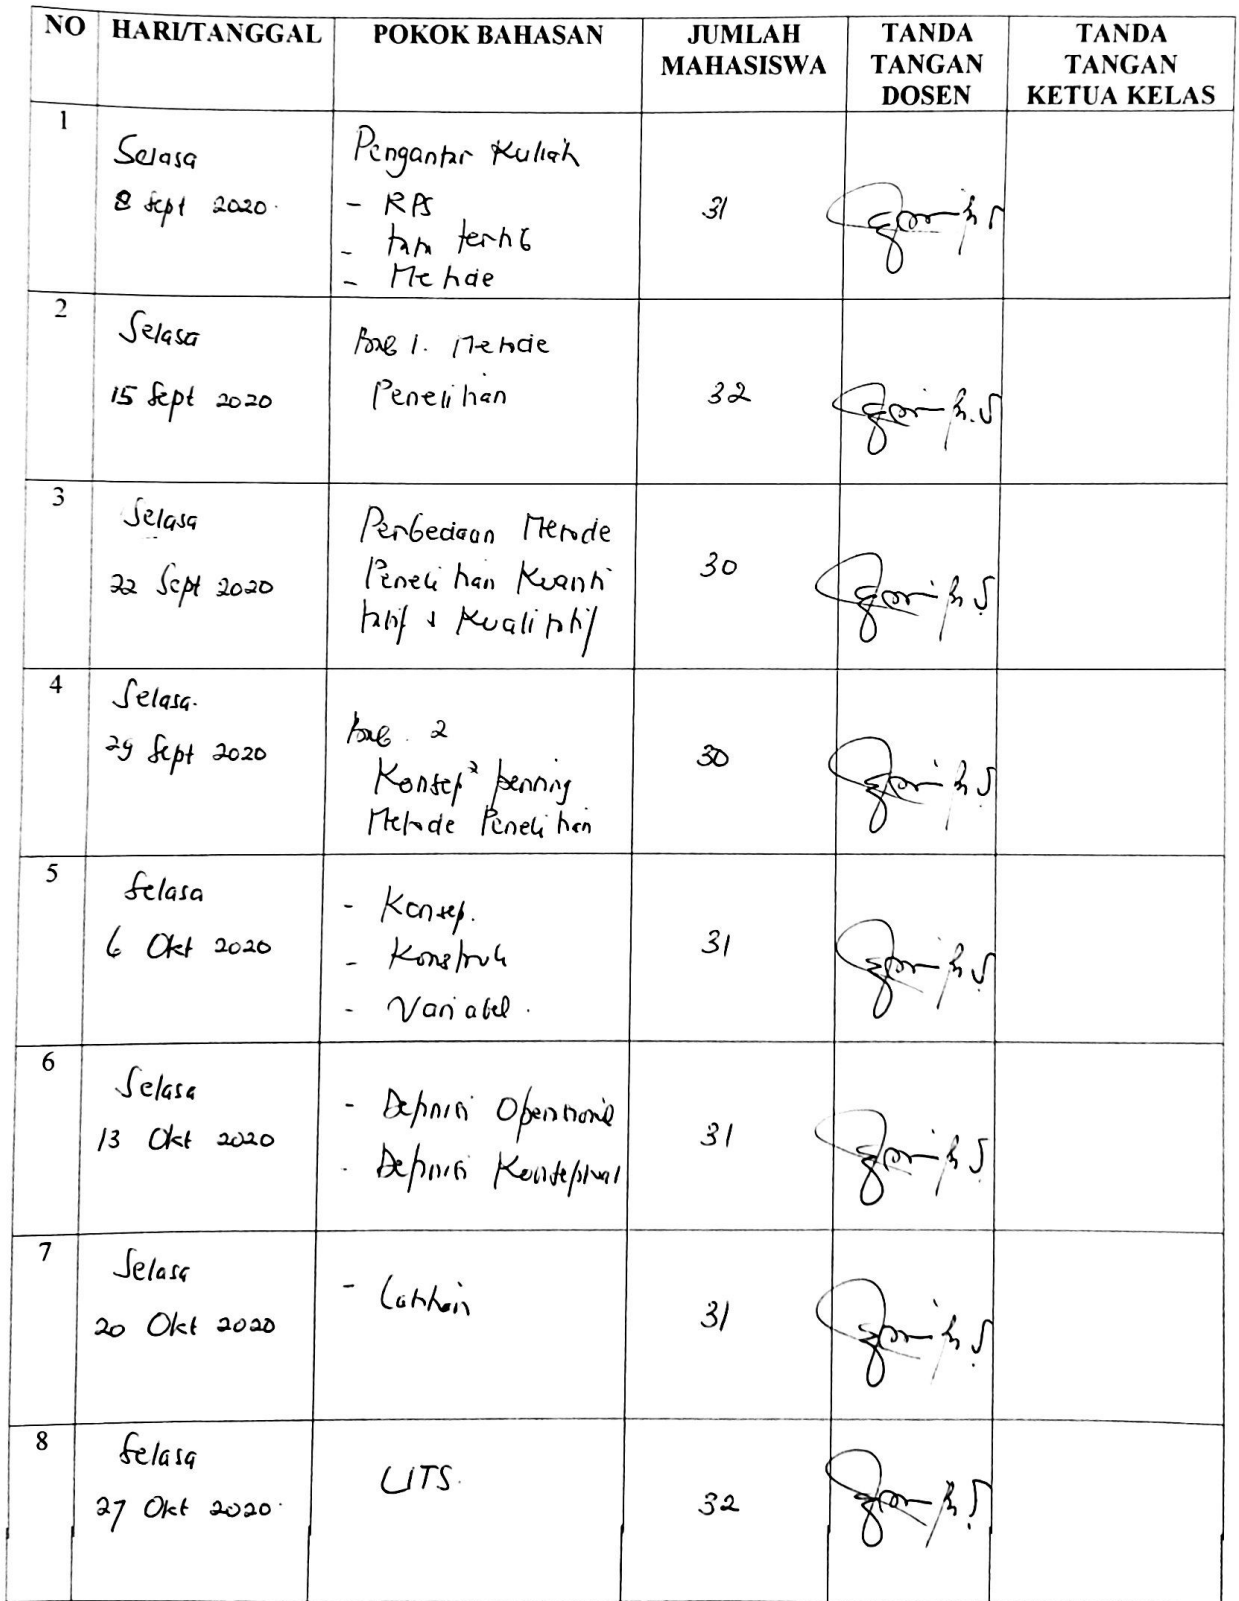 NO HARI/TANGGAL POKOK BAHASAN JUMLAH MAHASISWA TANDA TANGAN DOSEN TANDA TANGAN KETUA KELAS
1
Selasa
8 Sept 2020
Pengantar Kuliah
- RPS
- tata tertib
- Metode
31
2
Selasa
15 Sept 2020
Bab 1. Metode
Penelitian
32
3
Selasa
22 Sept 2020
Perbedaan Metode
Penelitian Kuanti
tatif & Kualitatif
30
4
Selasa.
29 Sept 2020
Bab. 2
Konsep² penting
Metode Penelitian
30
5
Selasa
6 Okt 2020
- Konsep.
- Konstruk
- Variabel.
31
6
Selasa
13 Okt 2020
- Definisi Operasional
- Definisi Konseptual
31
7
Selasa
20 Okt 2020
- Latihan
31
8
Selasa
27 Okt 2020.
UTS.
32